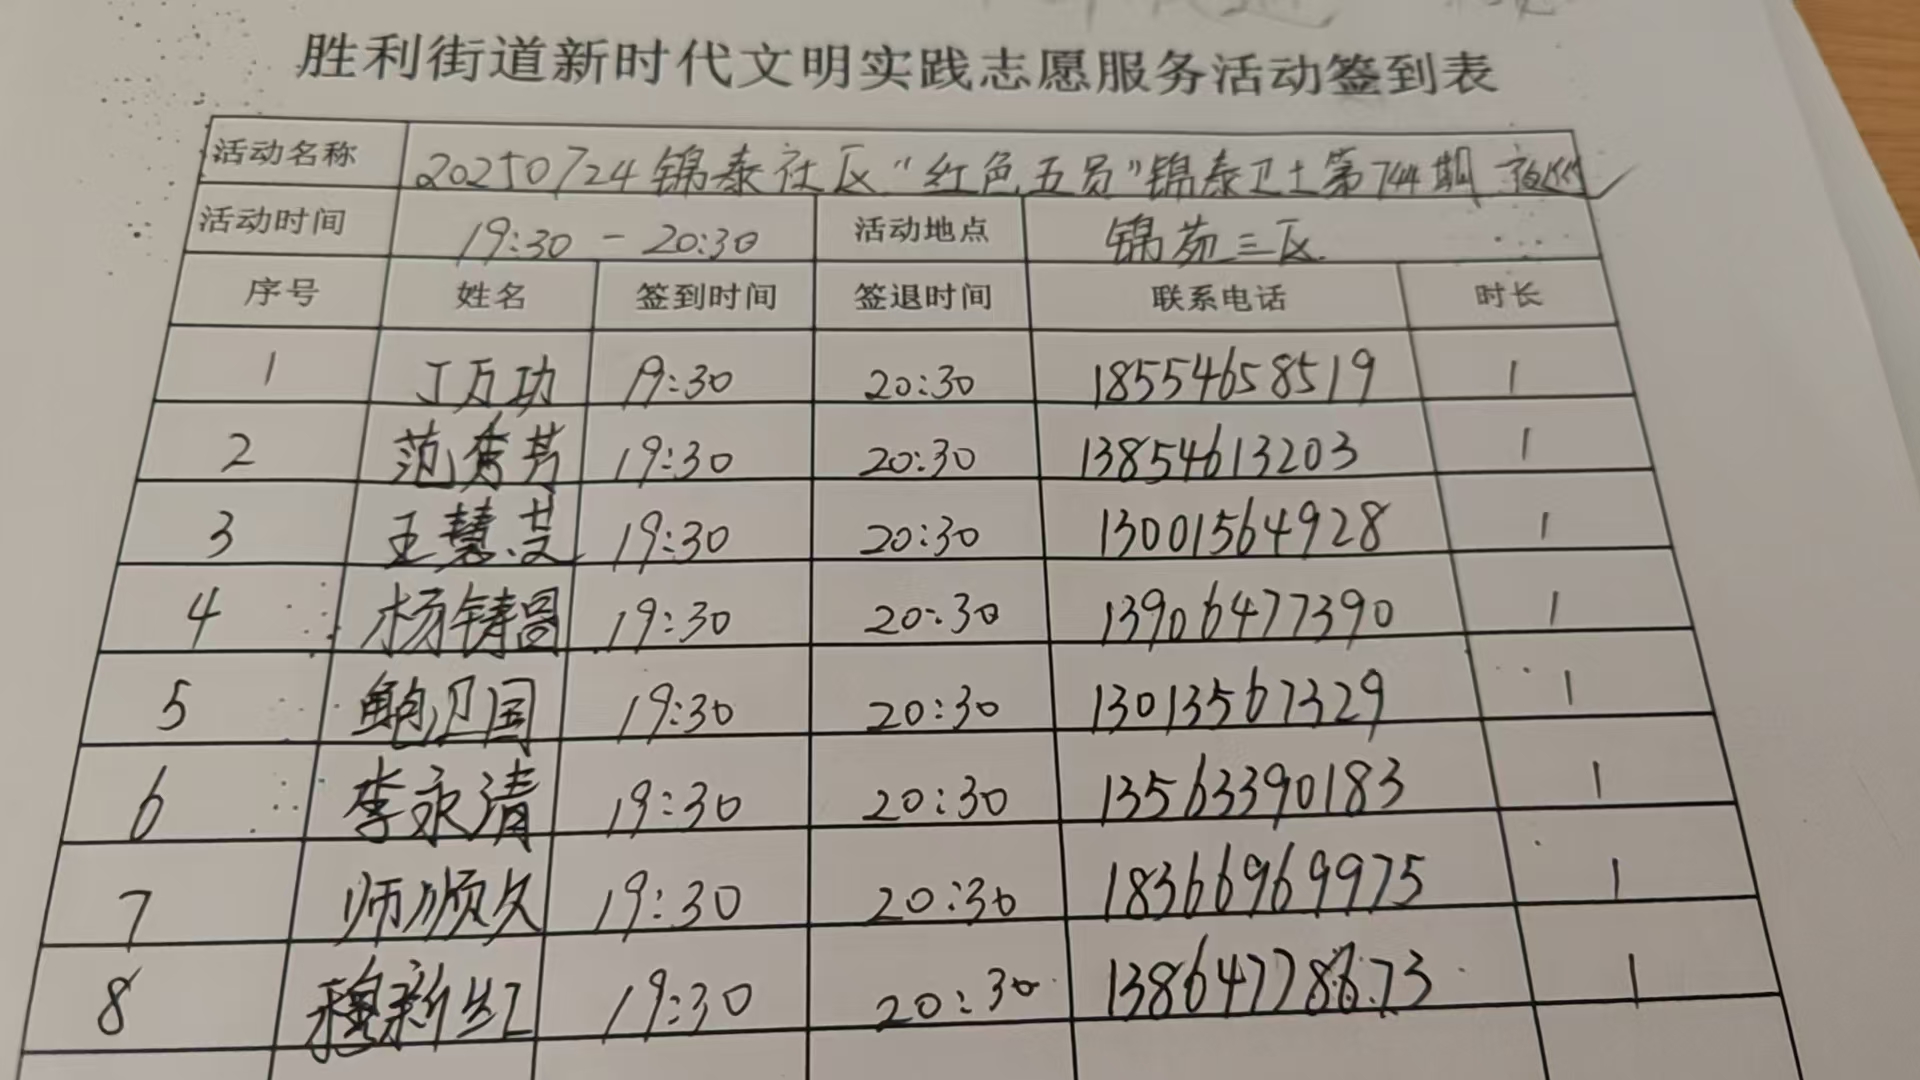 胜利街道新时代文明实践志愿服务活动签到表
活动名称 20250724锦泰社区“红色五员”锦泰卫士第744期
活动时间 19:30-20:30 活动地点 锦苑三区
序号 姓名 签到时间 签退时间 联系电话 时长
1 丁万功 19:30 20:30 18554658519 1
2 范秀芳 19:30 20:30 13854613203 1
3 王慧芝 19:30 20:30 13001564928 1
4 杨铸昌 19:30 20:30 13906477390 1
5 鲍卫国 19:30 20:30 13013567329 1
6 李永清 19:30 20:30 13563390183 1
7 师顺久 19:30 20:30 18366969975 1
8 穆新红 19:30 20:30 1